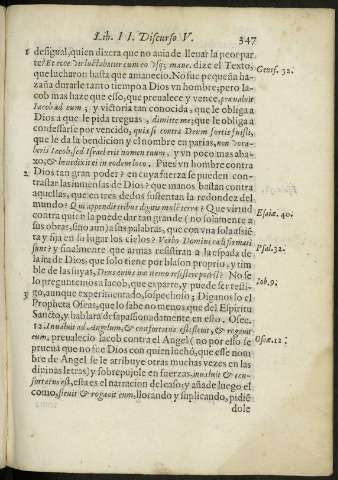 Lib. II. Discurso V. 347
1 desigual, quien dixera que no auia de lleuar la peor par-
te? Et ecce vir luctabatur cum eo vsq; mane. dize el Texto, Genes. 32.
que lucharon hasta que amanecio. No fue pequeña ha-
zaña durarle tanto tiempo a Dios vn hombre; pero Ia-
cob mas haze que esso, que preualece y vence, præualuit
Iacob ad eum; y victoria tan conocida, que le obliga a
Dios a que le pida treguas, dimitte me; que le obliga a
confessarse por vencido, quia si contra Deum fortis fuisti,
que le da la bendicion y el nombre en parias, non voca-
beris Iacob, sed Israel erit nomen tuum, y vn poco mas aba-
xo, & benedixit ei in eodem loco. Pues vn hombre contra
2 Dios tan gran poder? en cuya fuerza se pueden con-
trastar las inmensas de Dios? que manos bastan contra
aquellas, que en tres dedos sustentan la redondez del
mundo? Qui appendit tribus digitis molē terræ? Que virtud Esaiæ. 40.
contra quiē la puede dar tan grande (no solamente a
sus obras, sino aun) a sus palabras, que con vna sola assiē
ta y fija en su lugar los cielos? Verbo Domini cœli firmati Psal. 32.
sunt? y finalmente que armas resistiran a la espada de
la ira de Dios, que solo tiene por blason proprio, y tim
ble de las suyas, Deus cuius iræ nemo resistere potest? No se Iob. 9.
lo preguntemos a Iacob, que es parte, y puede ser testi-
3 go, aunque experimentado, sospechoso; Diganoslo el
Propheta Oseas, que lo sabe no menos que del Espiritu
Sancto, y hablará desapassionadamente en ello. Osee.
12. Inualuit ad Angelum, & confortatus est: fleuit, & rogauit Oseæ. 12.
eum, preualecio Iacob contra el Angel (no por esso se
prueua que no fue Dios con quien luchó, que esse nom
bre de Angel se le atribuye otras muchas vezes en las
diuinas letras) y sobrepujole en fuerzas, inualuit & con-
fortatus est, essa es el narracion de lcaso; y añade luego el
como, fleuit & rogauit eum, llorando y suplicando, pidiē
dole